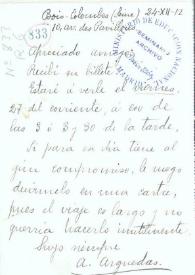 Bois-Colombes (Seine) 24-XII-12
10, av. des Pavillons
833
Apreciado amigo
Recibí su billete.
Estaré á verle el Viernes,
27 del corriente, á eso de
las 3 ó 3 y 30 de la tarde,
Si para ese día tiene al
gún compromiso, le ruego
decírmelo en una cartica,
pues el viaje es largo y no
querría hacerlo inútilmente.
Suyo siempre
A. Arguedas.
MINISTERIO DE EDUCACIÓN NACIONAL
ARCHIVO